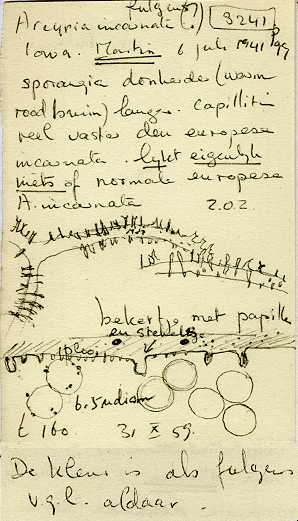 fulgens
Arcyria incarnata (?) 3241
Iowa. Martin 6 july 1941 p 99
sporangia donkerder (warm
roodbruin) langer. capillitium
veel vaster dan europese
incarnata. lykt eigenlyk
niets of normale europese
A. incarnata Z.O.Z.
bekertje met papille
en stekels
6.5 µ diam
t 160. 31 X 59.
De kleur is als fulgens
v.g.l. aldaar.